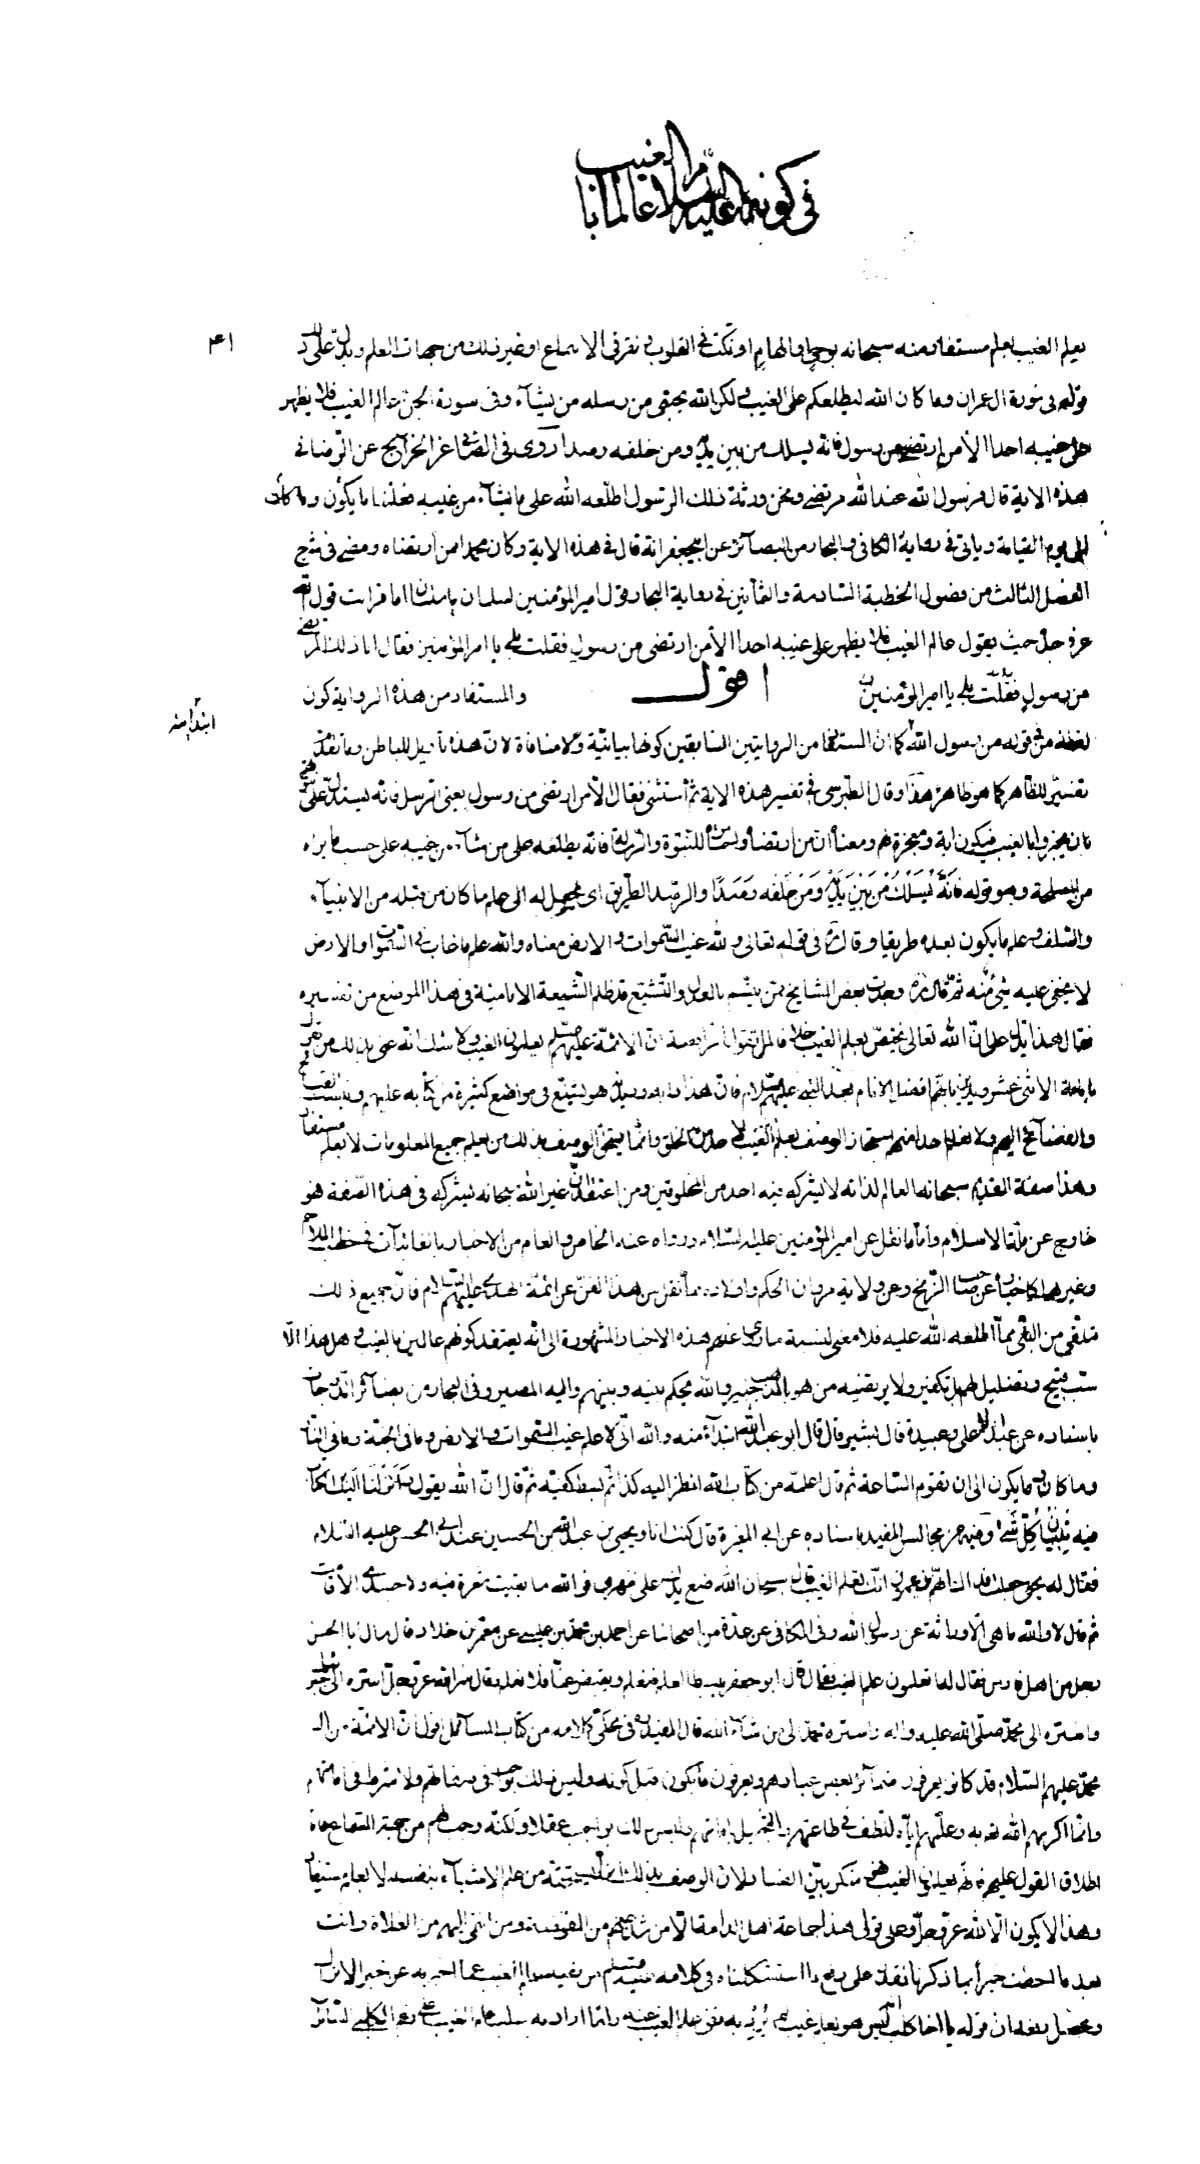 في كونه عليه السلام عالما بالغيب
۴۱
يعلم الغيب بعلم مستفاد منه سبحانه بوحي او الهام او نكت في القلوب او نقر في الاسماع او غير ذلك من جهات العلم ويدل على ذلك
قوله في سورة ال عمران وما كان الله ليطلعكم على الغيب ولكن الله يجتبي من رسله من يشآء وفي سورة الجن عالم الغيب فلا يظهر
على غيبه احدا الا من ارتضى من رسول فانه يسلك من بين يديه ومن خلفه رصدا روى في الصافي عن الخرايج عن الرضا في
هذه الاية قال فرسول الله عند الله مرتضى ونحن ورثة ذلك الرسول اطلعه الله على ما يشآء من غيبه فعلمنا ما يكون وما كان
الى يوم القيامة وياتي في رواية الكافي والبحار من البصآئر عن ابيجعفر انه قال في هذه الاية وكان محمد ممن ارتضاه ومضى في شرح
الفصل الثالث من فصول الخطبة السادسة والثمانين في رواية البحار قول امير المؤمنين لسلمان يا سلمان اما قرات قول الله
عز وجل حيث يقول عالم الغيب فلا يظهر على غيبه احدا الا من ارتضى من رسول فقلت بلى يا امير المؤمنين فقال انا ذلك المرتضى
من رسول فقلت بلى يا امير المؤمنين اقول والمستفاد من هذه الرواية كون
ابتدائية
لفظة من في قوله من رسول الله كما ان المستفاد من الروايتين السابقين كونها بيانية ولا منافاة لان هذه تاويل للباطن وما تقدم
تفسير للظاهر كما هو ظاهر هذا وقال الطبرسي في تفسير هذه الاية ثم استثنى فقال الا من ارتضى من رسول يعني الرسل فانه يستدل على نبوتهم
بان يخبروا بالغيب فيكون اية ومعجزة لهم ومعناه ان من ارتضاه واختاره للنبوة والرسالة فانه يطلعه على من شآء من غيبه على حسب ما يراه
من المصلحة وهو قوله فَاِنَّهُ يَسْلُكُ مِنْ بَيْنِ يَدَيْهِ وَمِنْ خَلْفِهِ رَصَدًا والرصد الطريق اى يجعل له الى علم ما كان من قبله من الانبيآء
والسلف وعلم ما يكون بعده طريقا وقال في قوله تعالى ولله غيب السموات والارض معناه والله علم ما غاب في السموات والارض
لا يخفى عليه شئ منه ثم قال وجدت بعض المشايخ ممن يتسم بالعدل والتشيع قد ظلم الشيعة الامامية في هذا الموضع من تفسيره
فقال هذا يدل على ان الله تعالى يختص بعلم الغيب خلافا لما تقول الرافضة ان الائمة عليهم السلام يعلمون الغيب ولا شك انه عنى بذلك من يقول
بامامة الاثنى عشر ويدين بانهم افضل الانام بعد النبي عليهم السلام فان هذا دابه وديدنه هو يشنع في مواضع كثيرة من كتابه عليهم وينسب القبائح
والفضآئح اليهم ولا نعلم احدا منهم استجاز الوصف بعلم الغيب لاحد من الخلق وانما يستحق الوصف بذلك من يعلم جميع المعلومات لا بعلم مستفاد
وهذا صفة القديم سبحانه العالم لذاته لا يشركه فيه احد من المخلوقين ومن اعتقد ان غير الله سبحانه يشركه في هذه الصفة هو
خارج عن ملة الاسلام واما ما نقل عن امير المؤمنين عليه السلام ورواه عنه الخاص والعام من الاخبار بالغائبات في خطب الملاحم
وغيرها كاخباره عن صاحب الزنج وعن ولاية مروان الحكم واولاده مما نقل من هذا الفن عن ائمة الهدى عليهم السلام فان جميع ذلك
متلقى من النبي مما اطلعه الله عليه فلا معنى لنسبة ما روى عنهم هذه الاخبار المشهورة الى انه يعتقد كونهم عالمين بالغيب وهل هذا الا
سب قبيح وتضليل لهم بل تكفير ولا يرتضيه من هو بالمذاهب خبير والله يحكم بينه وبينهم واليه المصير وفي البحار من بصآئر الدرجات
باسناده عن عبد الاعلى وعبيدة قال بشير قال قال ابو عبد الله ابتدآء منه والله انى لاعلم غيب السموات والارض وما في الجنة وما في النار
وما كان وما يكون الى ان تقوم الساعة ثم قال اعلمه من كتاب الله انظر اليه كذا ثم بسط كفيه ثم قال ان الله يقول وَاَنْزَلْنَا اِلَيْكَ الْكِتَابَ
فيه تِبْيَانُ كُلِّ شَيْءٍ وفيه من مجالس المفيد باسناده عن ابى المغيرة قال كنت انا ويحيى بن عبد الله بن الحسين عند ابى الحسن عليه السلام
فقال له يحيى جعلت فداك انهم يزعمون انك تعلم الغيب قال سبحان الله ضع يدك على فوالله ما بقيت شعرة فيه ولا جسدى الا قامت
ثم قال لا والله ما هى الا وراثة عن رسول الله وفي الكافي عن عدة من اصحابنا عن احمد بن محمد بن عيسى عن معمر بن خلاد قال سال ابا الحسن
رجل من اهل فارس فقال له اتعلمون علم الغيب فقال قال ابو جعفر يبسط لنا العلم فنعلم ويقبض عنا فلا نعلم وقال سر الله عز وجل اسره الى جبرئيل
واسره الى محمد صلى الله عليه واله واسره محمد الى من شآء الله قال المفيد في محكى كلامه من كتاب المسآئل اقول ان الائمة من ال
محمد عليهم السلام قد كانوا يعرفون ضمآئر بعض عباده ويعرفون ما يكون قبل كونه وليس ذلك بواجب في صفاتهم ولا شرط في امامتهم
وانما اكرمهم الله به وعلمهم اياه للطف في طاعتهم والتجميل بامامتهم وليس ذلك بواجب عقلا ولكنه وجب لهم من جهة السماع فاما
اطلاق القول عليهم بانهم يعلمون الغيب فهو منكر بين الفساد لان الوصف بذلك انما يستحقه من علم الاشيآء بنفسه لا بعلم مستفاد
وهذا لا يكون الا لله عز وجل وعلى قولى هذا جماعة اهل الامامة الا من شذ عنهم من المفوضة ومن انتمى اليهم من الغلاة وانت
بعد ما احطت خبرا بما ذكرنا تقدر على رفع ما استشكلناه في كلامه
ومحصل رفعه ان قوله يا اخا كلب ليس هو بعلم غيب لم يرد به نفى علم الغيب عنه وانما اراد به سلب علم الغيب على